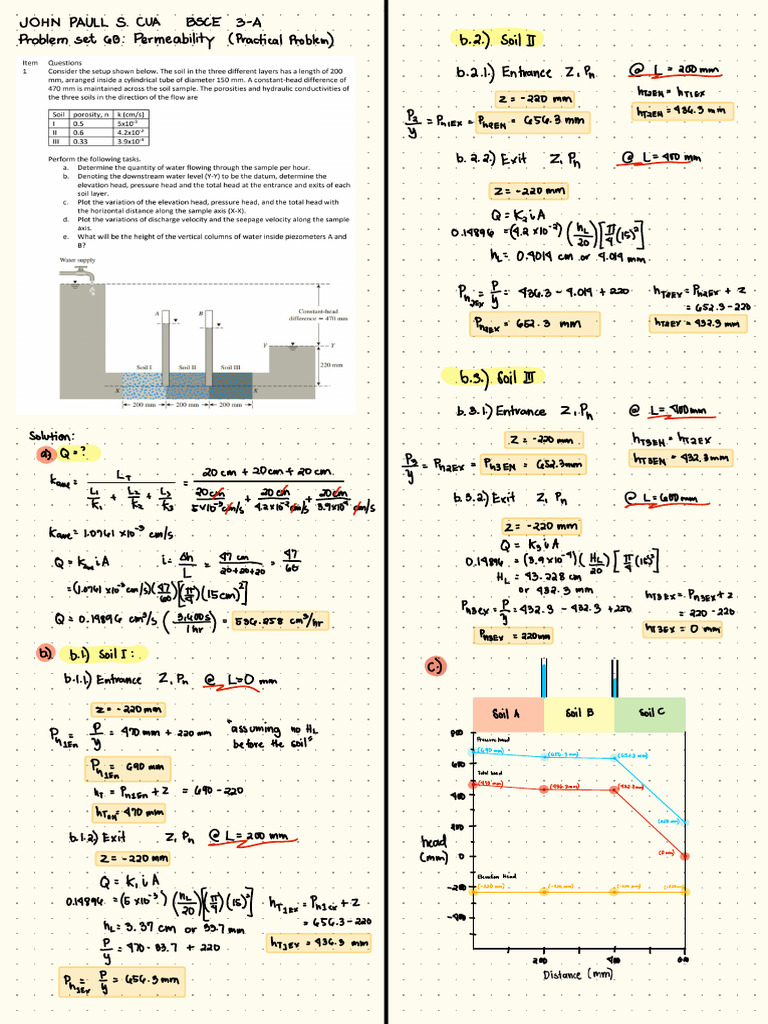 JOHN PAULL S. CUA BSCE 3-A
Problem set 6B: Permeability (Practical Problem)
Item Questions
1 Consider the setup shown below. The soil in the three different layers has a length of 200
mm, arranged inside a cylindrical tube of diameter 150 mm. A constant-head difference of
470 mm is maintained across the soil sample. The porosities and hydraulic conductivities of
the three soils in the direction of the flow are
Soil porosity, n k (cm/s)
I 0.5 5x10⁻³
II 0.6 4.2x10⁻²
III 0.33 3.9x10⁻⁴
Perform the following tasks.
a. Determine the quantity of water flowing through the sample per hour.
b. Denoting the downstream water level (Y-Y) to be the datum, determine the
elevation head, pressure head and the total head at the entrance and exits of each
soil layer.
c. Plot the variation of the elevation head, pressure head, and the total head with
the horizontal distance along the sample axis (X-X).
d. Plot the variations of discharge velocity and the seepage velocity along the sample
axis.
e. What will be the height of the vertical columns of water inside piezometers A and
B?
Water supply
A B
Constant-head
difference = 470 mm
Y Y
220 mm
Soil I Soil II Soil III
X X
200 mm 200 mm 200 mm
Solution:
a) Q = ?
kave = LT / (L1/k1 + L2/k2 + L3/k3) = (20 cm + 20 cm + 20 cm) / (20 cm/5x10⁻³ cm/s + 20 cm/4.2x10⁻² cm/s + 20 cm/3.9x10⁻⁴ cm/s)
kave = 1.0761 x10⁻³ cm/s
Q = kave i A i = Δh/L = 47 cm/(20+20+20) = 47/60
= (1.0761 x10⁻³ cm/s)(47/60)[(π/4)(15 cm)²]
Q = 0.14896 cm³/s (3,600 s/1 hr) = 536.258 cm³/hr
b) b.1) Soil I:
b.1.1) Entrance Z, Pn @ L=0 mm
z = -220 mm
Pn1En = P/y = 470 mm + 220 mm "assuming no HL
before the soil"
Pn1En = 690 mm
hT = Pn1En + Z = 690 - 220
hTEN = 470 mm
b.1.2) Exit Z, Pn @ L = 200 mm
z = -220 mm
Q = K1 i A
0.14896 = (5 x10⁻³)(hL/20)[(π/4)(15)²]
hL = 3.37 cm or 33.7 mm
P/y = 470 - 33.7 + 220
Pn1Ex = P/y = 656.3 mm
hT1Ex = Pn1Ex + Z
= 656.3 - 220
hT1EX = 436.3 mm
b.2.) Soil II
b.2.1.) Entrance Z, Pn @ L = 200 mm
z = -220 mm
hT2EN = hT1EX
hT2EN = 436.3 mm
P2/y = Pn1Ex = Pn2EN = 656.3 mm
b.2.2.) Exit Z, Pn @ L = 400 mm
z = -220 mm
Q = K2 i A
0.14896 = (4.2 x10⁻²)(hL/20)[π/4(15)²]
hL = 0.4014 cm or 4.014 mm
Pn2Ex = P/y = 436.3 - 4.014 + 220
Pn2Ex = 652.3 mm
hT2EX = Pn2EX + Z
= 652.3 - 220
hT2EX = 432.3 mm
b.3.) Soil III
b.3.1.) Entrance Z, Pn @ L = 400 mm
z = -220 mm
hT3EN = hT2EX
hT3EN = 432.3 mm
P3/y = Pn2Ex = Pn3EN = 652.3 mm
b.3.2.) Exit Z, Pn @ L = 600 mm
z = -220 mm
Q = K3 i A
0.14896 = (3.9 x10⁻⁴)(HL/20)[π/4(15)²]
HL = 43.228 cm
or 432.3 mm
Pn3Ex = P/y = 432.3 - 432.3 + 220
Pn3Ex = 220 mm
hT3EX = Pn3EX + z
= 220 - 220
hT3EX = 0 mm
c.)
Soil A Soil B Soil C
Pressure head
(690 mm) (656.3 mm) (652.3 mm)
(220 mm)
Total head
(470 mm) (436.3 mm) (432.3 mm)
(0 mm)
Elevation Head
(-220 mm) (-220 mm) (-220 mm) (-220 mm)
800
600
400
200
0
-200
-400
head
(mm)
200 400 600
Distance (mm)